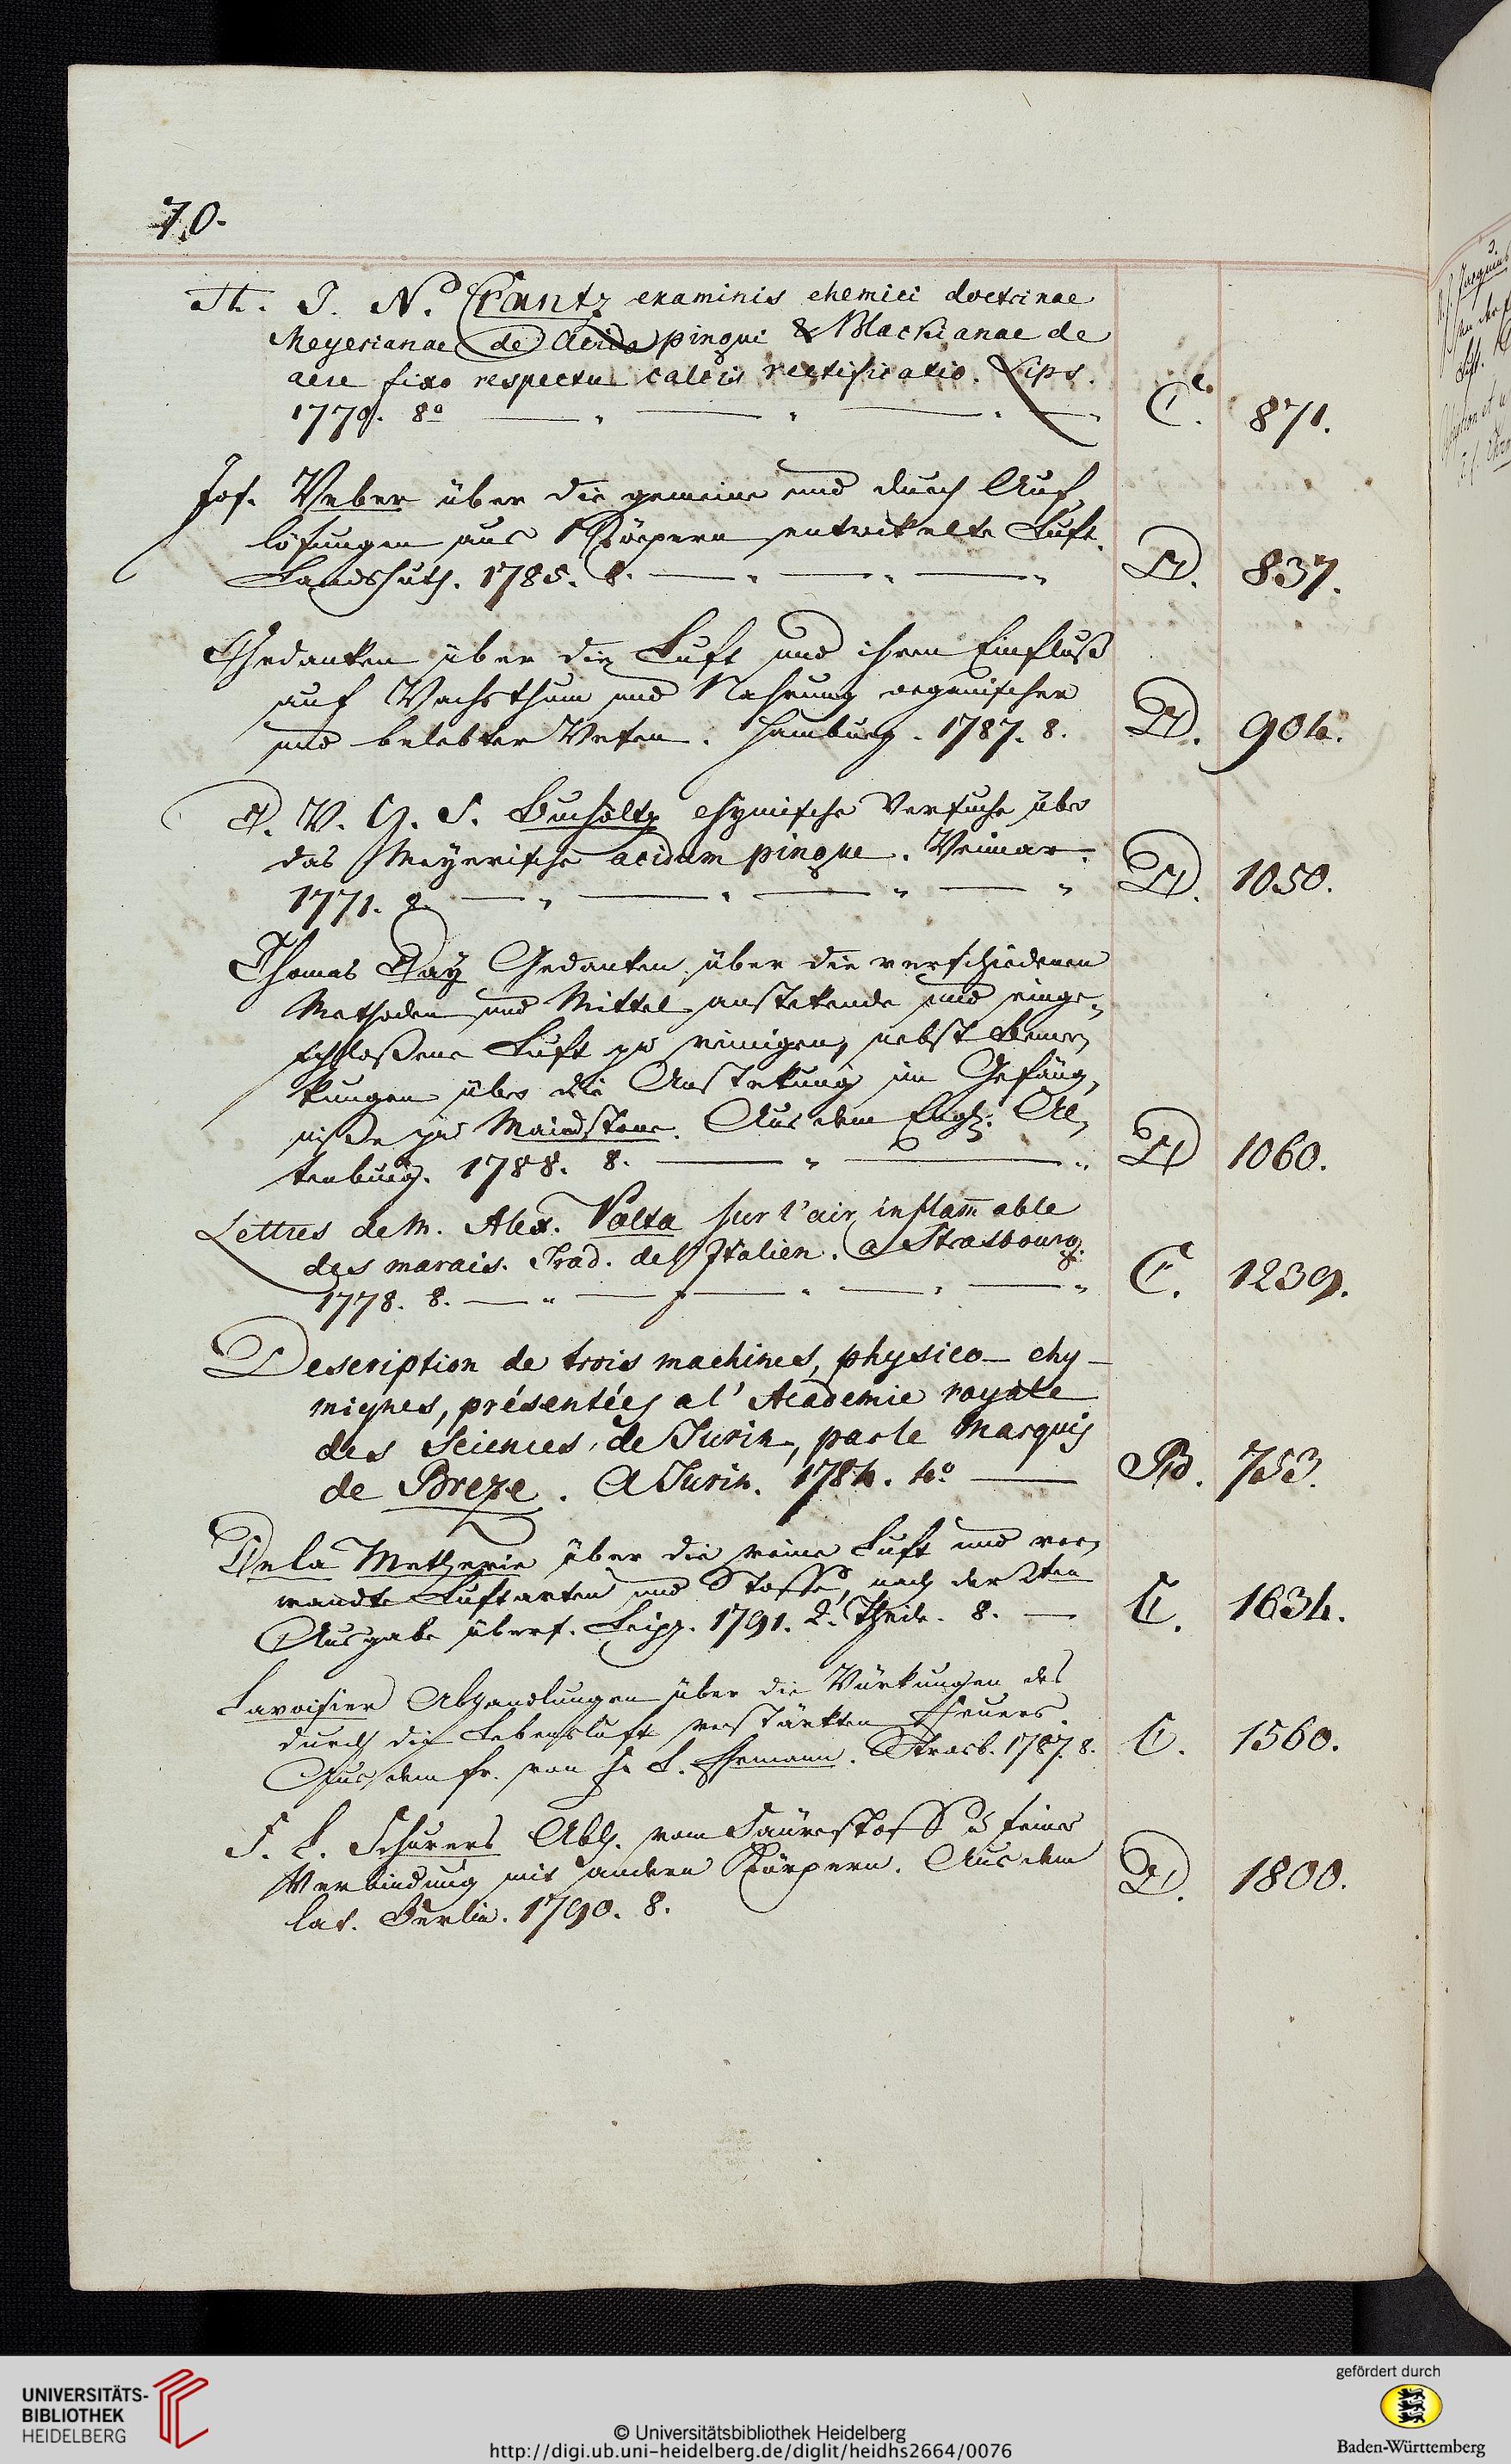 70.
H. J. N. Crantz examinis chemici doctrinae
Meyerianae de Acido pingui & Blackianae de
aere fixo respectu calcis rectificatio. Lips.
1770. 8º C. 871.
Jos. Weber über die gemeine und durch Auf-
lösungen aus Körpern entwikelte Luft.
Landshuth. 1785. 8. D. 837.
Gedanken über die Luft und ihren Einfluß
auf Wachsthum und Nahrung organischer
und belebter Wesen. Hamburg. 1787. 8. D. 904.
D. W. H. S. Bucholtz chymische Versuche über
das Meyerische acidum pingue. Weimar.
1771. 8. D. 1050.
Thomas Day Gedanken über die verschiedenen
Methoden und Mittel anstekende und einge-
schloßene Luft zu reinigen, nebst Bemer-
kungen über die Anstekung im Gefäng-
niße zu Maidstone. Aus dem Engl. Al-
tenburg. 1788. 8. D 1060.
Lettres de M. Alex. Volta sur l'air inflam̄able
des marais. Trad. de l'Italien. a Strasbourg.
1778. 8. C. 1239.
Description de trois machines, physico-chy-
miques, présentées a l'Academie royale
des Sciences, de Turin, par le Marquis
de Breze. A Turin. 1784. 4º B. 753.
De la Metherie über die reine Luft und ver-
wandte Luftarten und Stoffe, nach der 2ten
Ausgabe übers. Leipz. 1791. 2. Theile. 8. C. 1634.
Lavoisier Abhandlungen über die Würkungen des
durch die Lebensluft verstärkten Feuers.
Aus dem fr. von F. L. Ehrmann. Strasb. 1787. 8. C. 1560.
F. L. Schurers Abh. vom Säurestoff u seiner
Verbindung mit andern Körpern. Aus dem
lat. Berlin. 1790. 8. D. 1800.
UNIVERSITÄTS-
BIBLIOTHEK
HEIDELBERG
© Universitätsbibliothek Heidelberg
http://digi.ub.uni-heidelberg.de/diglit/heidhs2664/0076
gefördert durch
Baden-Württemberg